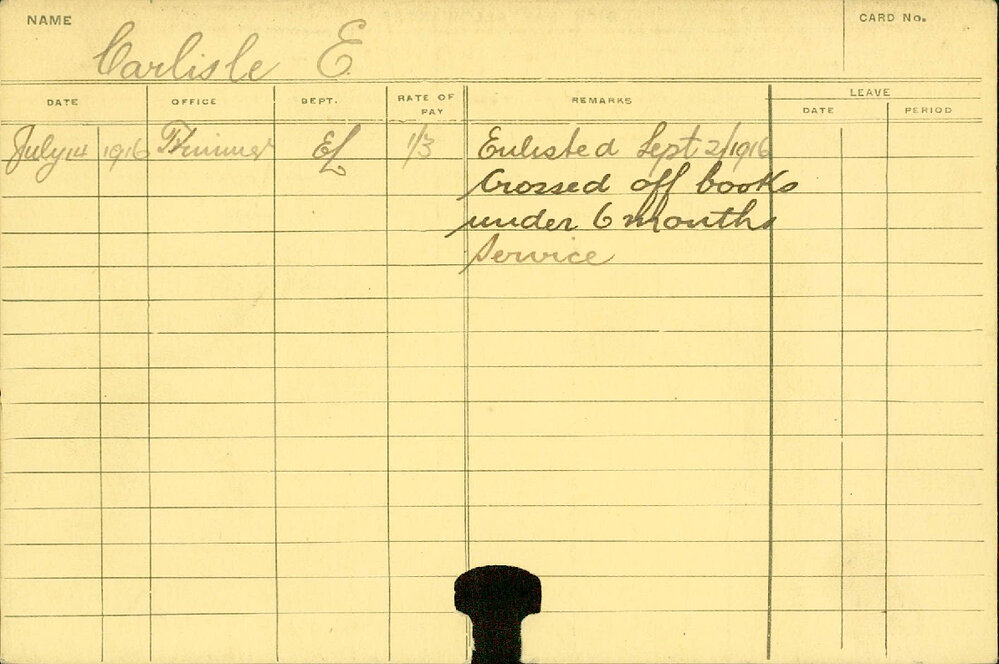 NAME
CARD No.
Carlisle E
DATE OFFICE DEPT. RATE OF PAY REMARKS LEAVE
DATE PERIOD
July 14 1916 Trimmer EL 1/3 Enlisted Sept 2/1916
Crossed off books
under 6 months
Service